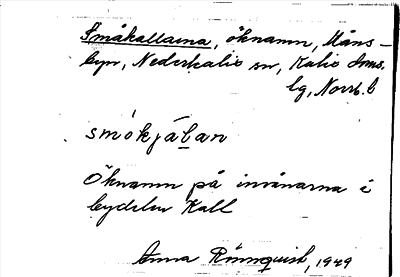 Småkallarna, öknamn, Måns-
byn, Nederkalix sn, Kalix dms.
lg, Norrb. l
smókjá̱lan
Öknamn på invånarna i
bydelen Kall
Anna Rönnquist, 1949